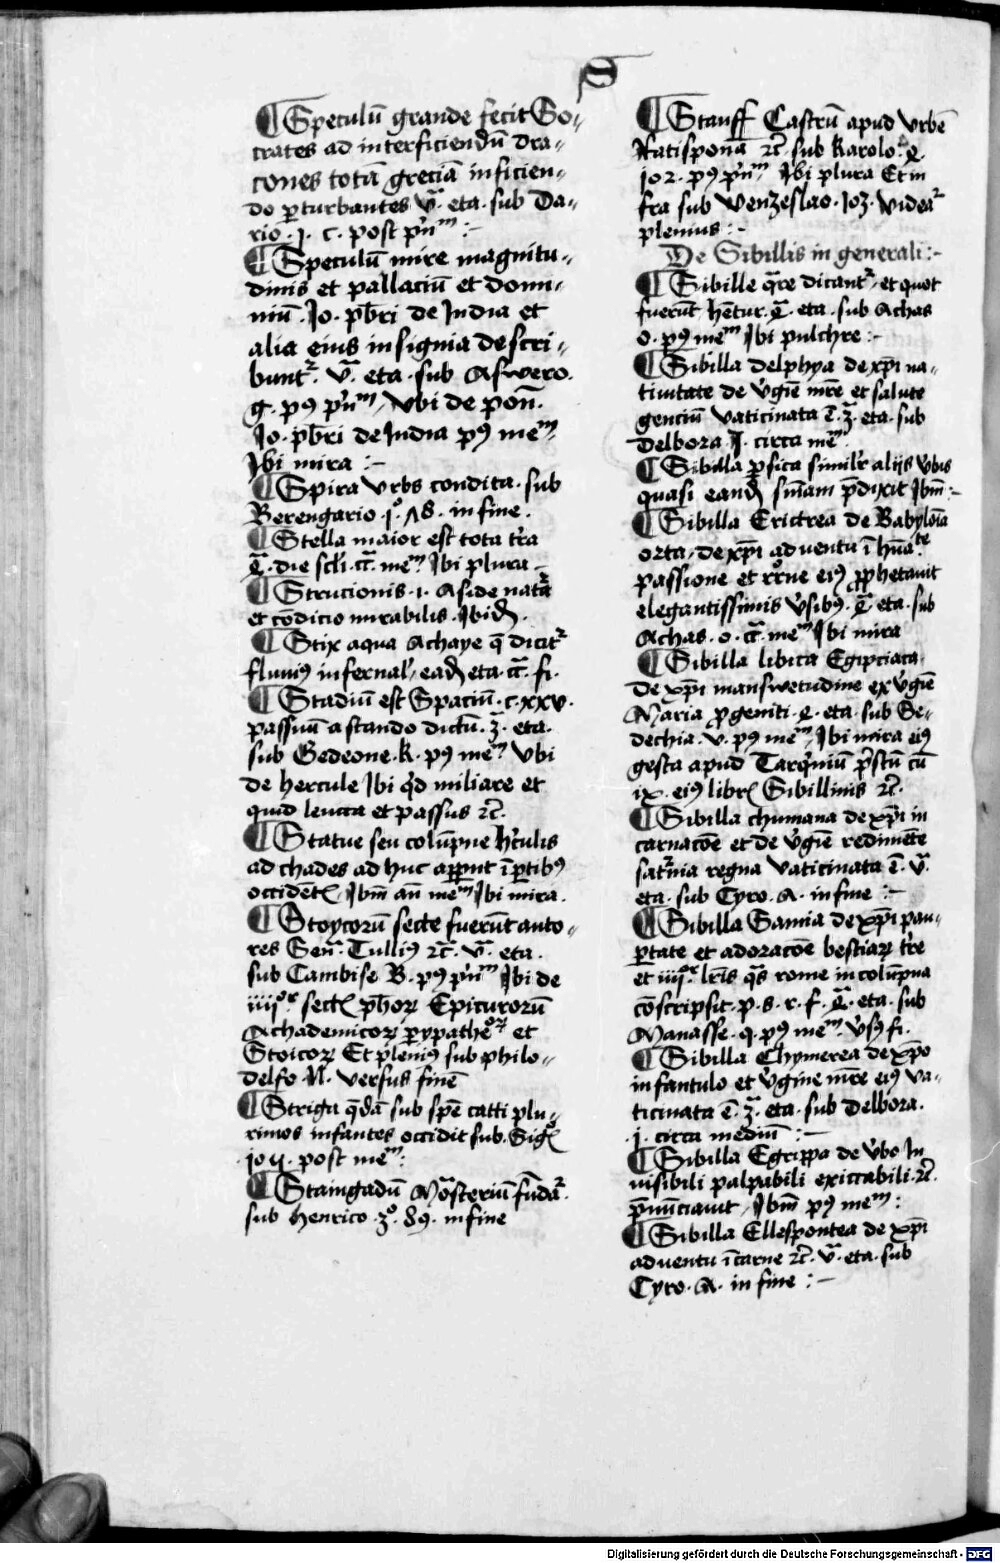 S
¶ Speculū grande fecit So⸗
crates ad interficiendū dra⸗
cones totā greciā inficien⸗
do ꝑturbantes v̄ᵃ. eta. sub Da⸗
rio. j. c. post pⁱn̄ᵐ :⁓
¶ Speculū mire magnitu⸗
dinis et pallaciū et domi⸗
niū. Jo. pb̄ri de India et
alia eius insignia descri⸗
bunt᷑. v̄ᵃ. eta. sub Aswero.
g. pꝰ pⁱn̄ᵐ, vbi de pon̄.
Jo. pb̄ri de India pꝰ meᵐ
Ibi mira :⁓
¶ Spira vrbs condita. sub
Berengario. jº. 78. in fine.
¶ Stella maior est tota tr̄a
die scl̄i. cᵃ. meᵐ Ibi plura
¶ Strucionis. i. aside natᵃ
et cōdicio mirabilis. Ibid̄.
¶ Stix aqua Achaye q̄ dicit᷑
fluviꝰ infernal̄, ead̄ eta. cᵃ. fi.
¶ Stadiū est Spaciū. c. xxv.
passuū a stando dictū. 3ᵃ. eta.
sub Gedeone. k. pꝰ meᵐ vbi
de hercule Ibi qd̄ miliare et
quid leuca et passus ꝛc̄.
¶ Statue seu colūpne hr̄culis
ad chades ad huc apparēt ī ꝑtibꝰ
occidetꝭ Ibm̄ an̄ meᵐ Ibi mira.
¶ Stoycorū secte fuerūt auto⸗
res Sen̄. Tulliꝰ ꝛc̄. v̄ᵃ. eta.
sub Cambise B. pꝰ pⁱn̄ᵐ Ibi de
iiijᵒʳ sectꝭ ph̄oꝝ Epicurorū
Achademicoꝝ ꝑypatheᵒꝝ et
Stoicoꝝ Et pleniꝰ sub philo⸗
delfo N. versus finē
¶ Striga qd̄ā sub spē catti plu⸗
rimos infantes occidit sub. Sigꝭº
post meᵐ:
¶ Staingadū Mōsteriū fūdat᷑.
sub henrico. 3º. 89. in fine
¶ Stauff Castrū apud vrbē
Ratisponā ꝛc̄. sub karolo. 4.
102. pꝰ pⁱn̄ᵐ Ibi plura Et in
fra sub Wenzeslao. 103. videat᷑
plenius :⁓
De Sibillis in generali :⁓
¶ Sibille qr̄e dicant᷑, et quot
fuerūt hn̄tur. 4ᵃ. eta. sub Achas
o. pꝰ meᵐ Ibi pulchre :⁓
¶ Sibilla delphya de xp̄i na⸗
tiuitate de vⁱgīe mr̄e et salute
genciū vaticinata ē. 3ᵃ. eta. sub
Delbora J. circa meᵐ
¶ Sibilla ꝑsica similr̄ alijs vbis
quasi eand̄ sn̄iam p̄dixit Ibm̄ :⁓
¶ Sibilla Erictrea de Babylōia
orta, de xp̄i aduentu ī hūāᵗᵉ
passione et rr̄ne eiꝰ ꝓphetauit
elegantissimis vⁱsibꝰ. 4ᵃ. eta. sub
Achas. o. cᵃ. meᵐ Ibi mira
¶ Sibilla libica Egipciaca.
de xp̄i manswetudine ex vⁱgīe
Maria ꝓgeniti. 4. eta. sub Se⸗
dechia. v. pꝰ meᵐ, Ibi mira eiꝰ
gesta apud Tarqⁱniū pⁱscū cū
ix. eiꝰ librꝭ Sibillinis ꝛc̄.
¶ Sibilla chumana de xp̄i in
carnacōe et de vⁱgīe redimēte
satⁱnia regna vaticinata ē. v̄ᵃ.
eta. sub Cyro. A. in fine :⁓
¶ Sibilla Samia de xp̄i pau⸗
ꝑtate et adoracōe bestiaꝝ tr̄e
et iiijᵒʳ lrīs qᵃs rome in colūpna
cōscripsit. p. s. r. f. 4ᵃ. eta. sub
Manasse. q. pꝰ meᵐ. vⁱsꝰ fi.
¶ Sibilla Chymerea de xp̄o
infantulo et vⁱgine mr̄e eiꝰ va⸗
ticinata ē. 3ᵃ. eta. sub Delbora.
j. circa mediū :⁓
¶ Sibilla Egrippa de vⁱbo In
uisibili palpabili exiccabili. ꝛc̄.
p̄nūciauit, Ibm̄ pꝰ meᵐ :
¶ Sibilla Ellespontea de xp̄i
aduentu ī carne ꝛc̄. v̄ᵃ. eta. sub
Cyro. A. in fine :⁓
Digitalisierung gefördert durch die Deutsche Forschungsgemeinschaft - DFG